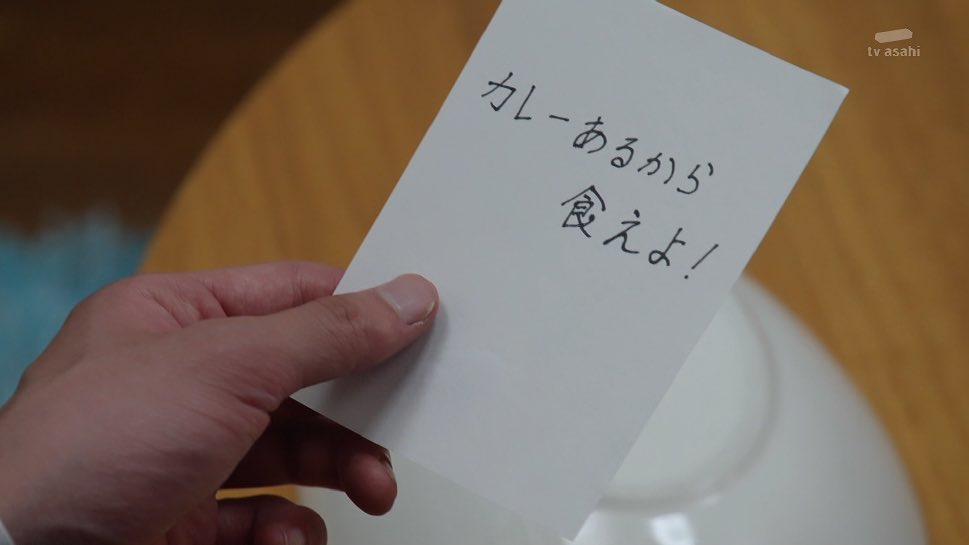 tv asahi
カレーあるから
食えよ!